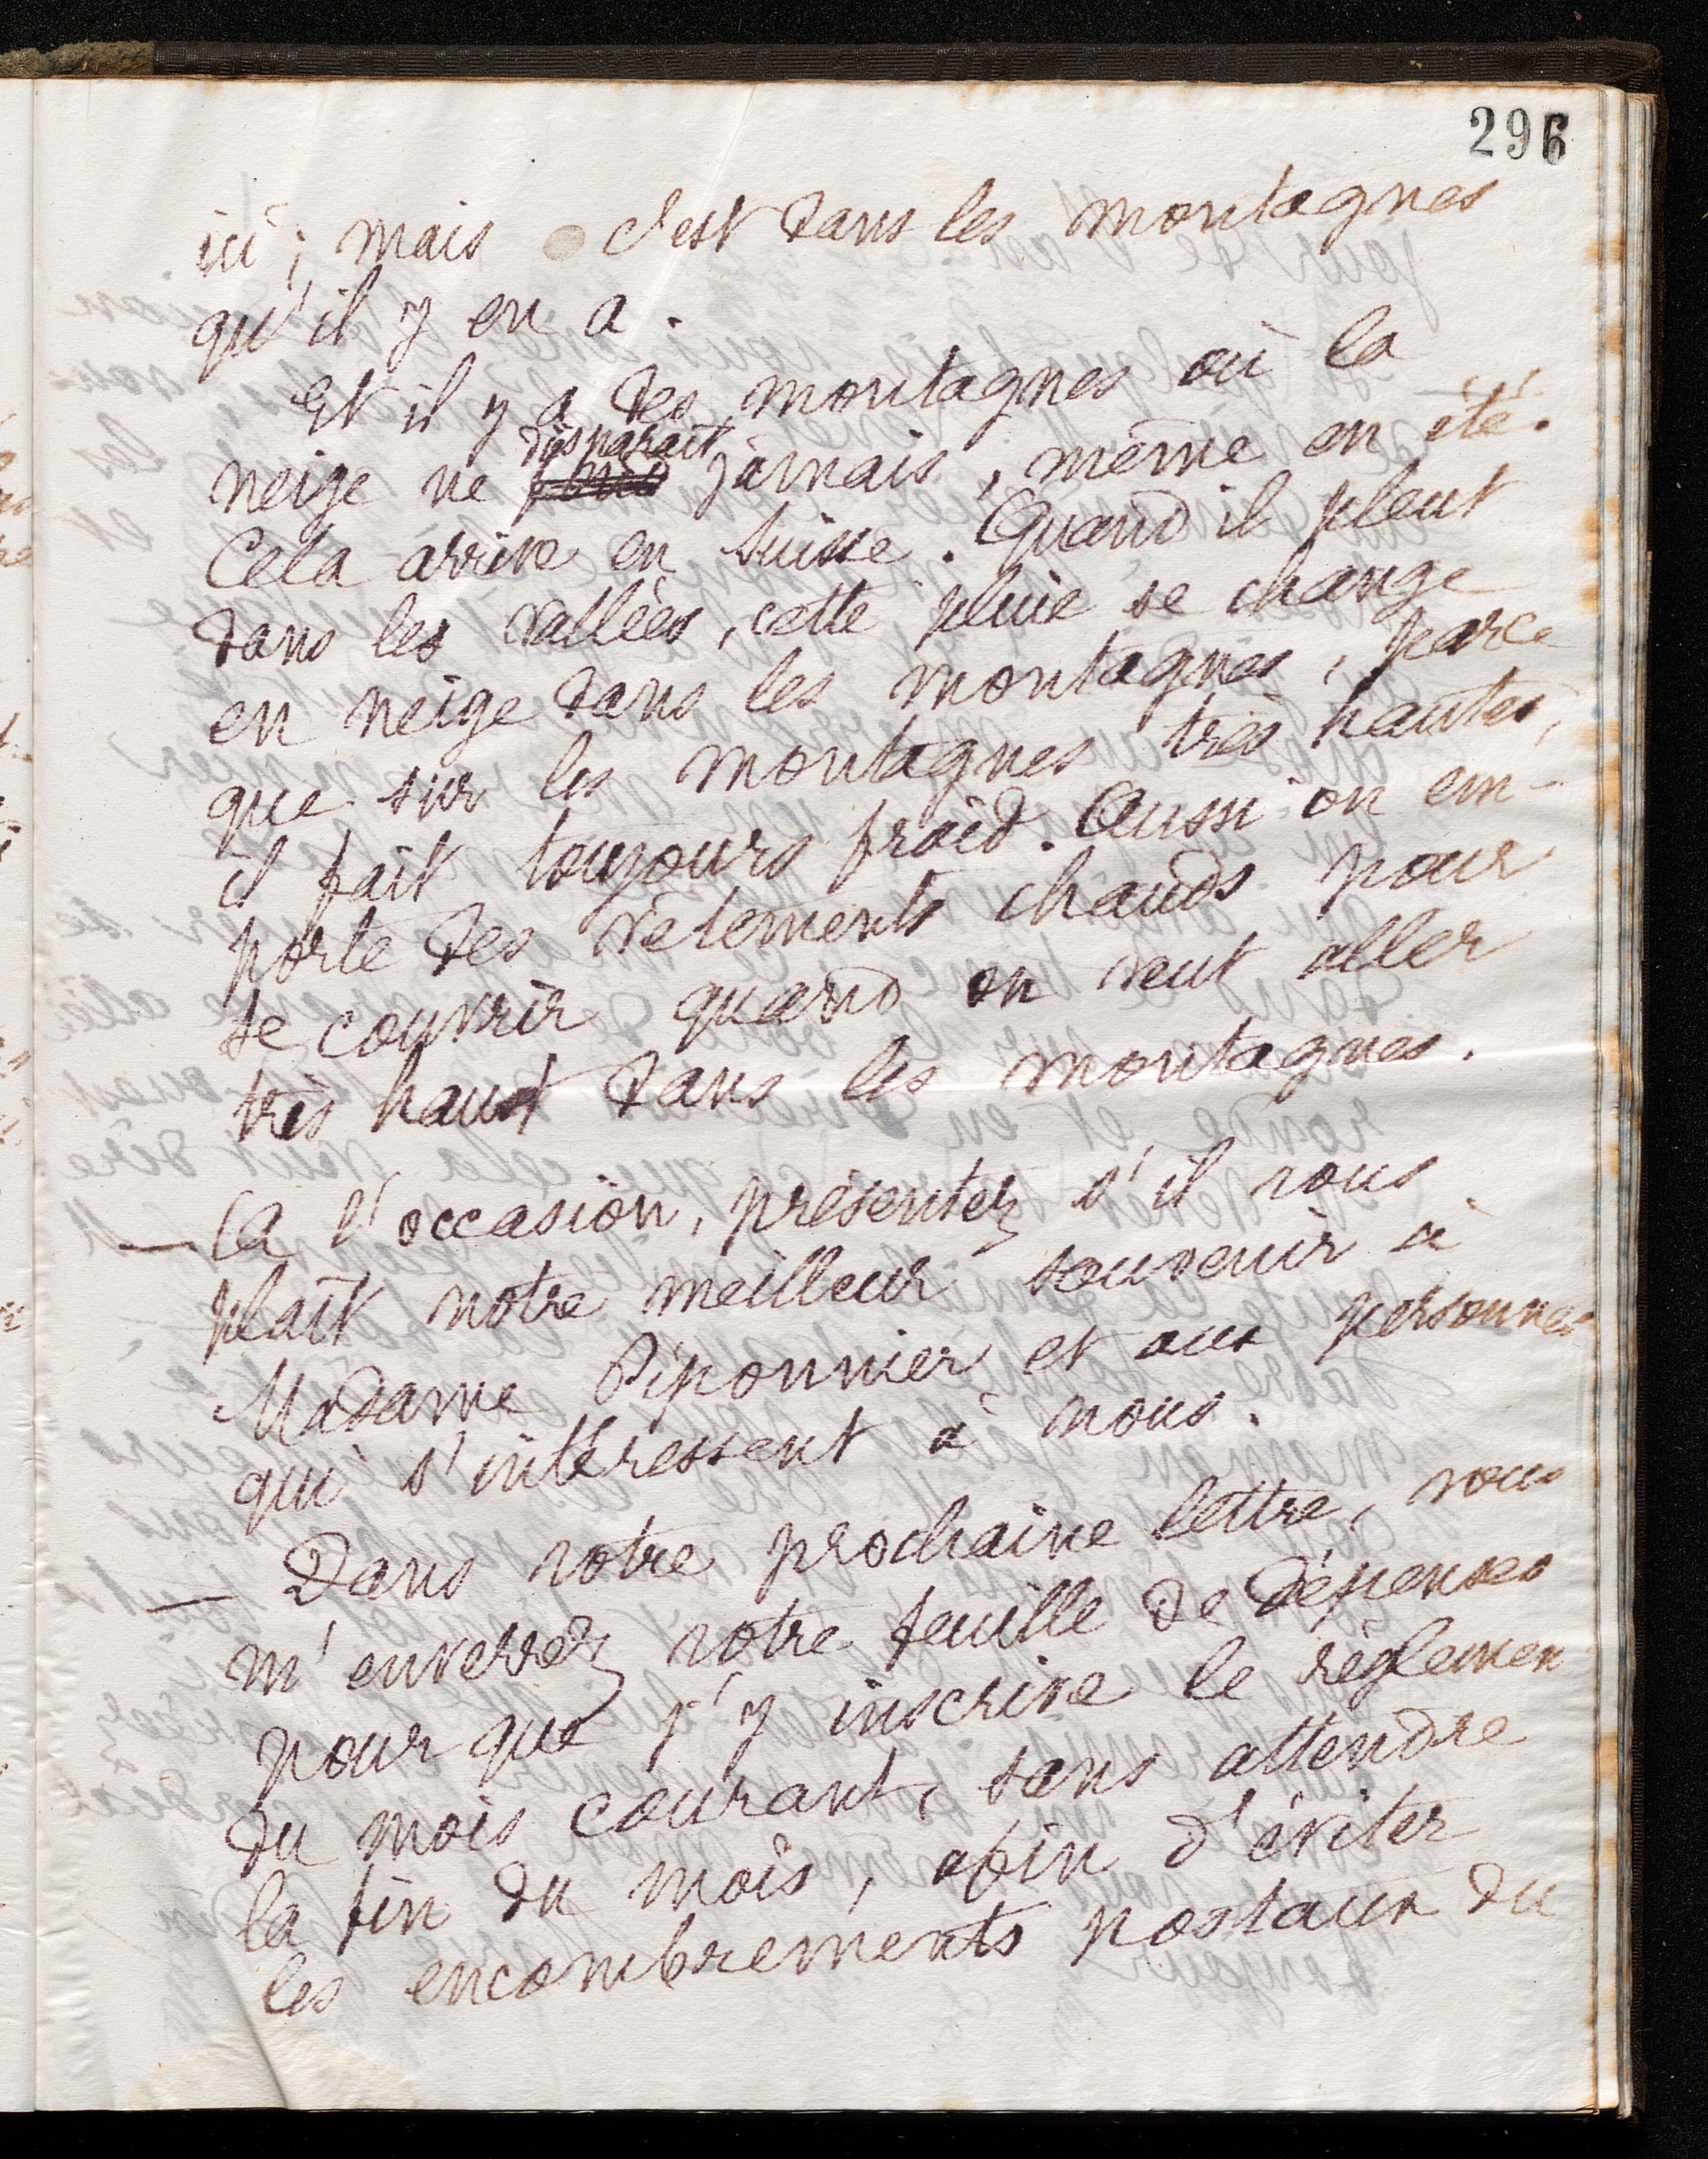 296
ici ; mais c'est dans les montagnes
qu'il y en a.
Et il y a des montagnes où la
neige ne fond disparait jamais, même en été.
Cela arrive en Suisse. Quand il pleut
dans les vallées, cette pluie se change
en neige dans les montagnes, parce
que sur les montagnes très hautes,
il fait toujours froid. Aussi on em-
porte des vêtements chauds pour
se couvrir quand on veut aller
très haut dans les montagnes.
— A l'occasion, présentez s'il vous
plaît notre meilleur souvenir à
Madame Piponnier et aux personnes
qui s'intéressent à nous.
— Dans votre prochaine lettre, vous
m'enverrez votre feuille de dépenses
pour que j'y inscrive le règlemen
du mois courant, sans attendre
la fin du mois, afin d'éviter
les encombrements postaux du